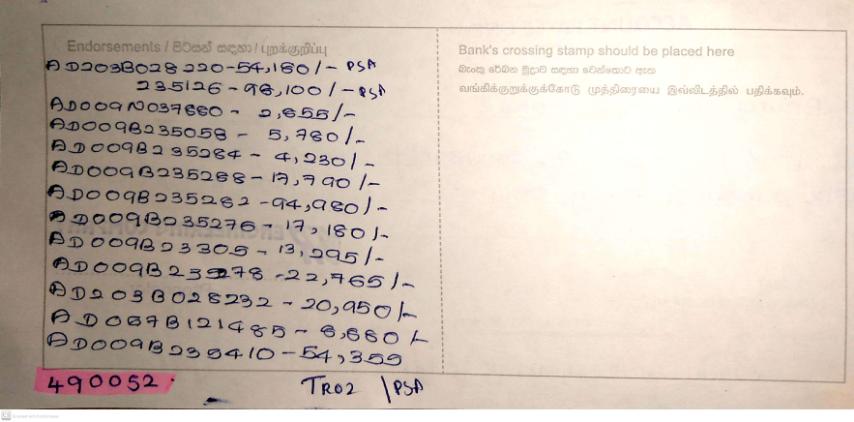 Endorsements / පිටසන් සඳහා / புறக்குறிப்பு
AD203B028220-54,180/- PSA
235126-98,100/- PSA
AD009N037880 - 2,855/-
AD009B235058 - 5,780/-
AD009B235284 - 4,230/-
AD009B235288-17,790/-
AD009B235282-94,980/-
AD009B235276-17,180/-
AD009B23305-13,295/-
AD009B235278-22,765/-
AD203B028232-20,950/-
AD067B121485-8,880/-
AD009B235410-54,355
490052.
TR02 /PSA
Bank's crossing stamp should be placed here
බැංකු රේඛන මුද්‍රාව සඳහා වෙන්කොට ඇත
வங்கிக்குறுக்குக்கோடு முத்திரையை இவ்விடத்தில் பதிக்கவும்.